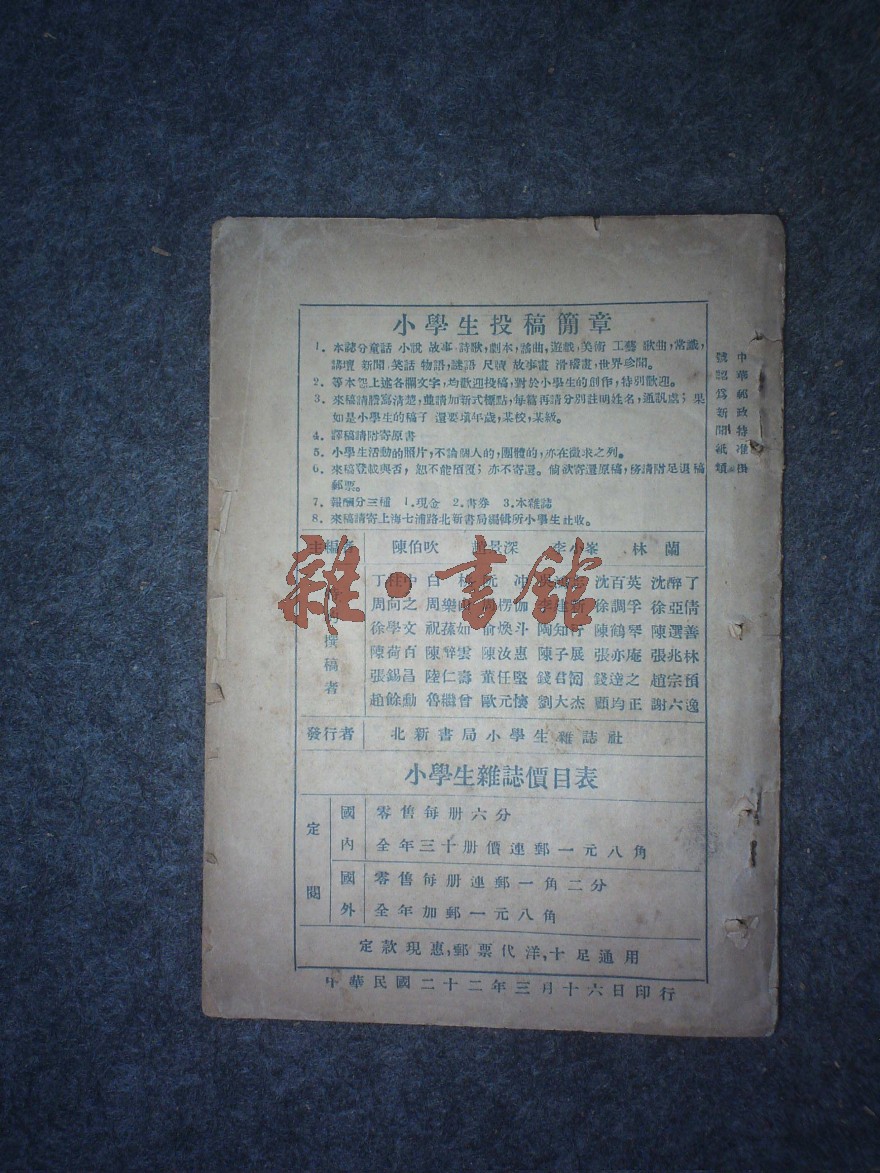 小學生投稿簡章
1. 本誌分童話 小說 故事 詩歌,劇本,謠曲,遊戲,美術 工藝 歌曲,常識,
講壇 新聞 笑話 物語,謎語 尺牘 故事畫 滑稽畫,世界珍聞。
2. 等本題上述各欄文字,均歡迎投稿,對於小學生的創作,特別歡迎。
3. 來稿請謄寫清楚,並請加新式標點,每篇再請分別註明姓名,通訊處;果
如是小學生的稿子 還要填年歲,某校,某級。
4. 譯稿請附寄原書
5. 小學生活動的照片,不論個人的,團體的,亦在徵求之列。
6. 來稿登載與否,恕不能預覆;亦不寄還。倘欲寄還原稿,務請附足退稿
郵票。
7. 報酬分三種 1.現金 2.書券 3.本雜誌
8. 來稿請寄上海七浦路北新書局編輯所小學生社收。
中華郵政特准掛
號認為新聞紙類
主編者 陳伯吹 趙景深 李小峯 林蘭
撰稿者
丁柱中 白 沖 沈百英 沈醉了
周向之 周樂 楞伽 李建新 徐調孚 徐亞倩
徐學文 祝蓀如 俞煥斗 陶知行 陳鶴琴 陳選善
陳荷百 陳醉雲 陳汝惠 陳子展 張亦庵 張兆林
張錫昌 陸仁壽 董任堅 錢君匋 錢達之 趙宗預
趙餘勳 魯繼曾 歐元懷 劉大杰 顧均正 謝六逸
發行者 北新書局小學生雜誌社
小學生雜誌價目表
定閱
國內
零售每册六分
全年三十册價連郵一元八角
國外
零售每册連郵一角二分
全年加郵一元八角
定款現惠,郵票代洋,十足通用
中華民國二十二年三月十六日印行
雜·書館